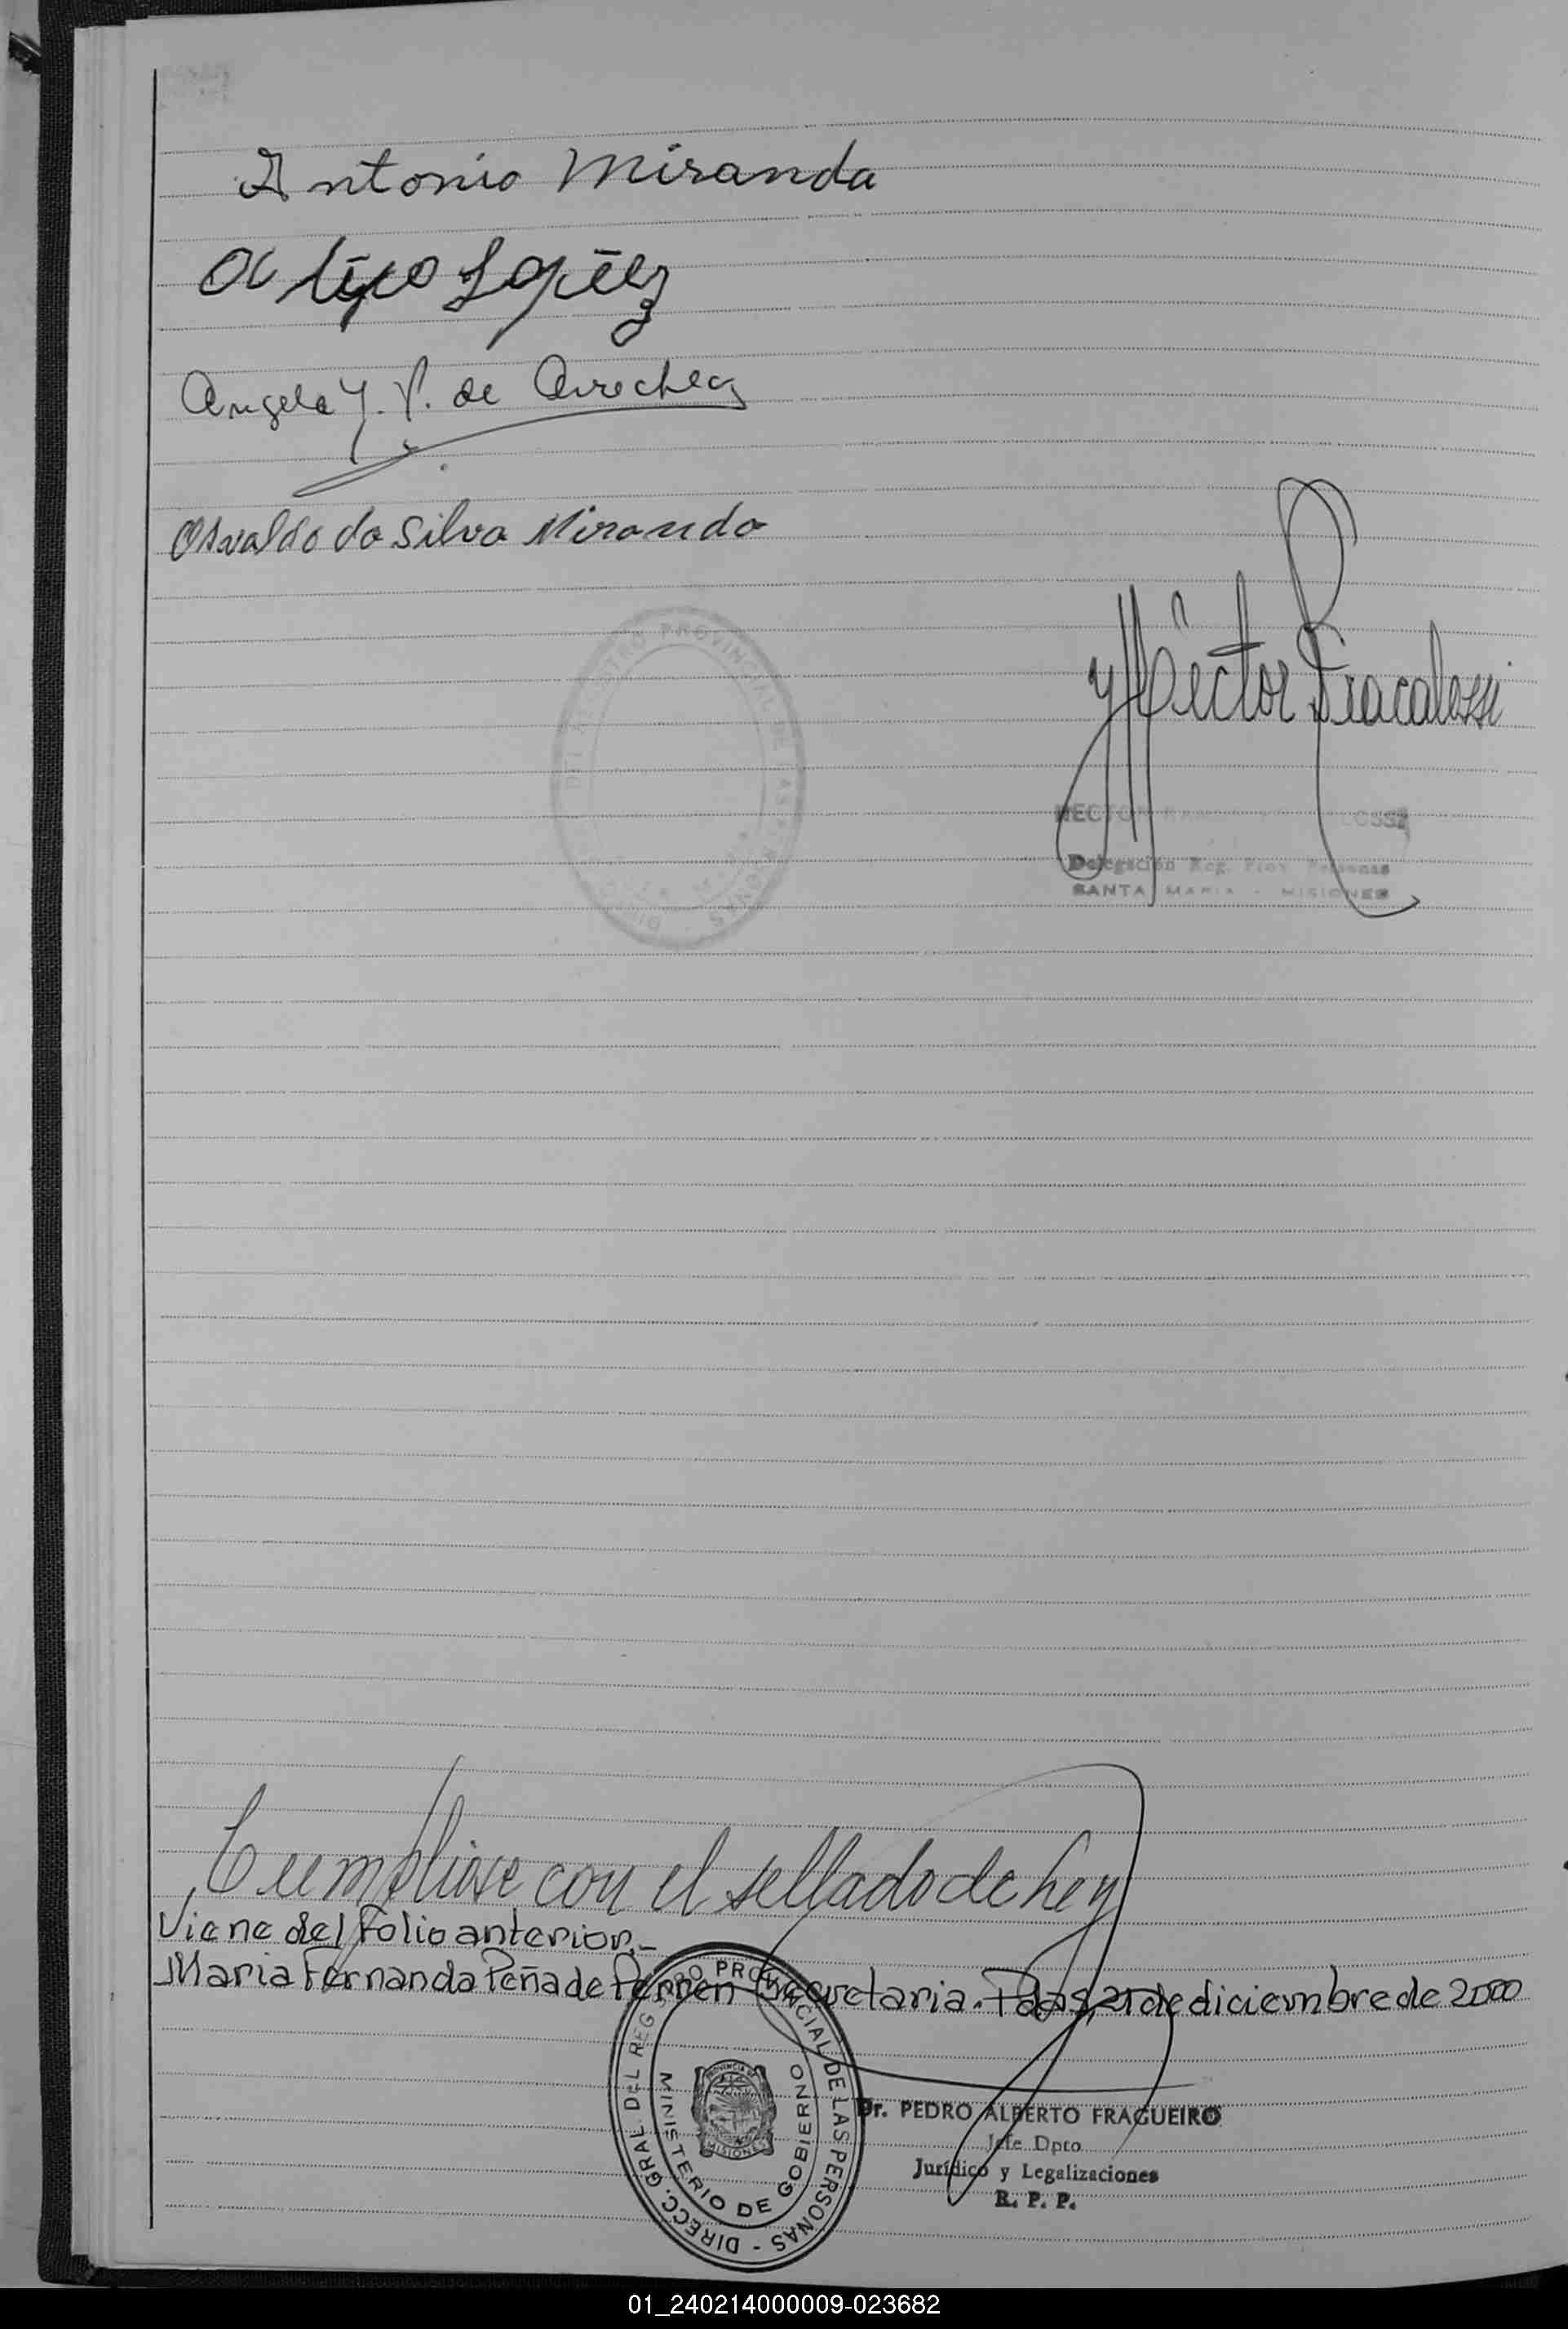 Antonio Miranda
Lopez
Angela Y. P. de Arrechea
Osvaldo da Silva Miranda
Hector Fracalossi
DEL REGISTRO PROVINCIAL DE LAS PERSONAS
HECTOR
Delegación Reg. Prov. Personas
SANTA MARIA - MISIONES
Cumpliose con el sellado de Ley
Viene del Folio anterior.-
Maria Fernanda Peña de Perren Secretaria. Pdas, 21 de diciembre de 2000
DIRECC. GRAL. DEL REGISTRO PROVINCIAL DE LAS PERSONAS -
MINISTERIO DE GOBIERNO
PROVINCIA DE
MISIONES
Dr. PEDRO ALBERTO FRAGUEIRO
Jefe Dpto
Jurídico y Legalizaciones
R. P. P.
01_240214000009-023682